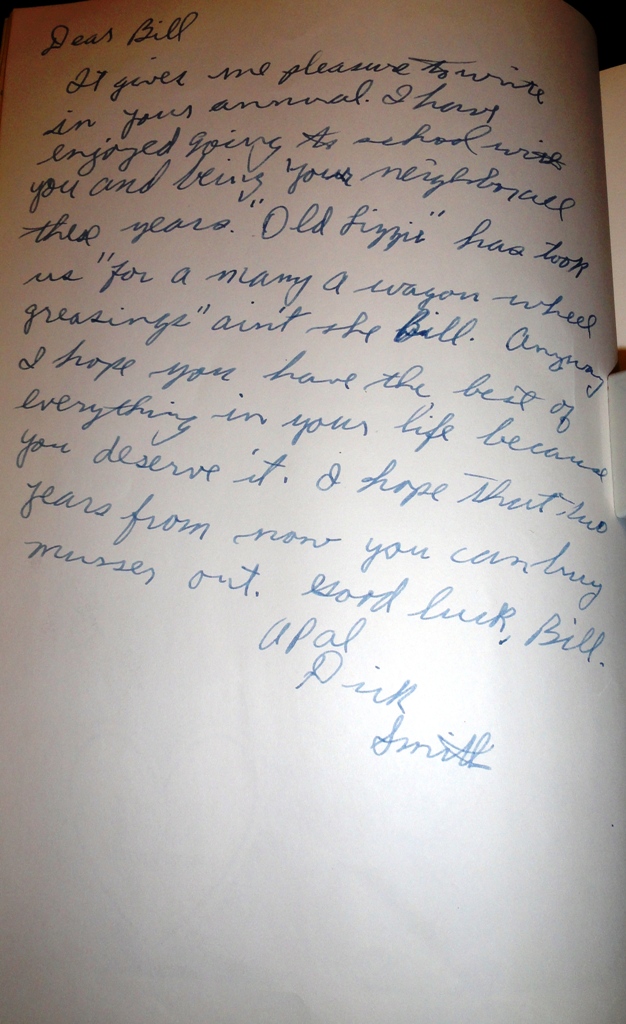 Dear Bill
It gives me pleasure to write
in your annual. I have
enjoyed going to school with
you and being your neighbor all
these years. "Old Lizzie" has took
us "for a many a wagon wheel
greasings" ain't she Bill. Anyway
I hope you have the best of
everything in your life because
you deserve it. I hope that two
years from now you can buy
out. Good luck, Bill.
A Pal
Dick
Smith